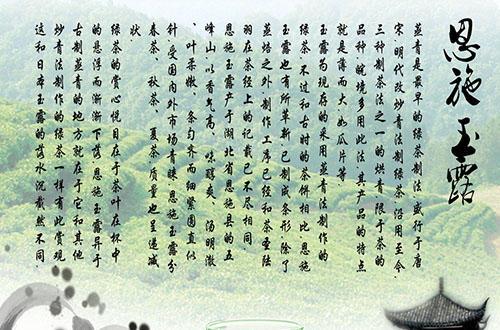 恩施玉露
蒸青是最早的绿茶制法盛行于唐
宋明代改炒青法制绿茶沿用至今.
三种制茶法之一的烘青限于茶的
品种.皖境多用此法.其产品的特点
就是薄而大.如瓜片等.
玉露为现存的采用蒸青法制作的
绿茶.不过和古时的茶饼相比恩施
玉露也有所革新.已制成条形除了
蒸焙之外.制作工序已经和茶圣陆
羽在茶经上的记载已不尽相同.
恩施玉露产于湖北省恩施县的五
峰山.以香气高、味醇爽、汤明澈
、叶柔嫩、条匀齐而细紧圆直似
针受国内外市场青睐.恩施玉露分
春茶、秋茶、夏茶.质量也呈递减
状.
绿茶的赏心悦目在于茶叶在杯中
的悬浮而渐渐下落.恩施玉露异于
古制蒸青的地方就在于它和其他
炒青法制作的绿茶一样有此赏观
这和日本玉露的落水沉截然不同.